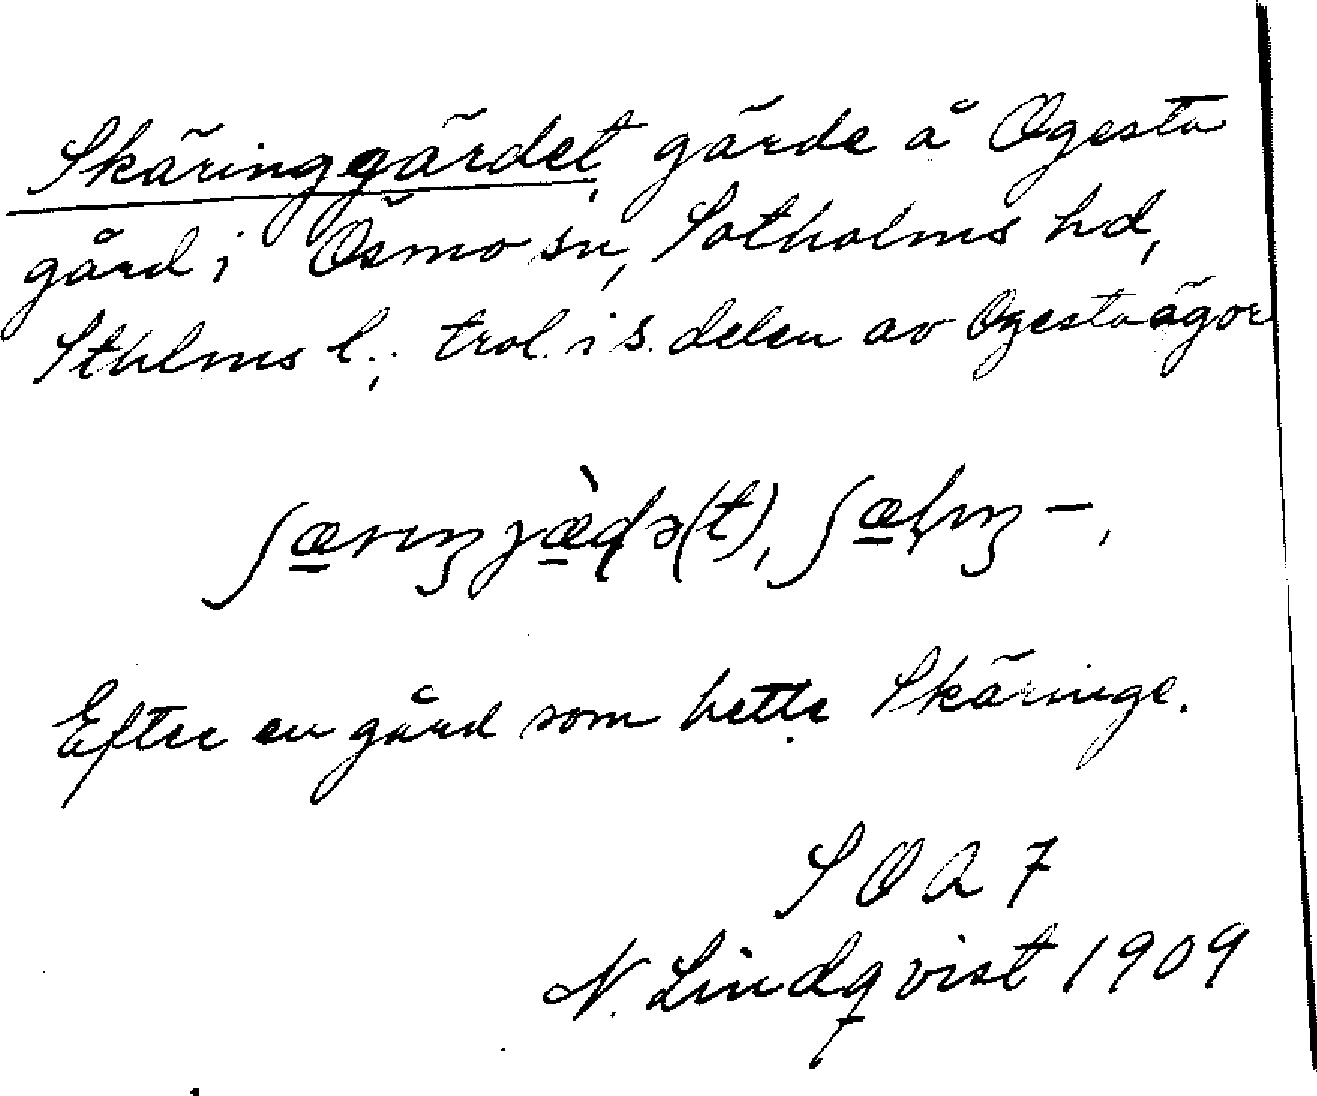 Skäringgärdet, gärde å Ogesta
gård i Ösmo sn, Sotholms hd,
Sthlms l.; trol. i s. delen av Ogesta ägor
Efter en gård som hette Skäringe.
S O A 7
N. Lindqvist 1909